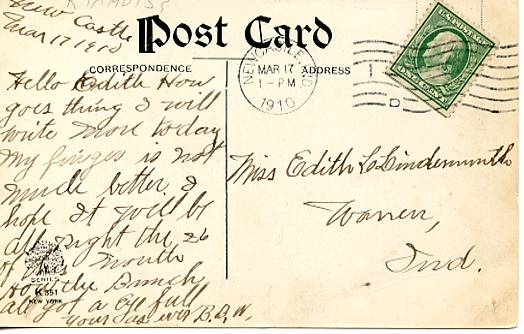 New Castle
Mar 17 1910
Post Card
CORRESPONDENCE
ADDRESS
NEWCASTLE, IND
MAR 17
1-PM
1910
D
Hello Edith How
goes thing I will
write more to day
My finger is not
much better, I
hope It will be
all right the 26
of this Month
the Bunch
all got a full
Yours as ever B.D.W.
SERIES
K 351
NEW YORK
Miss Edith L Lindemuth
Warren,
Ind.